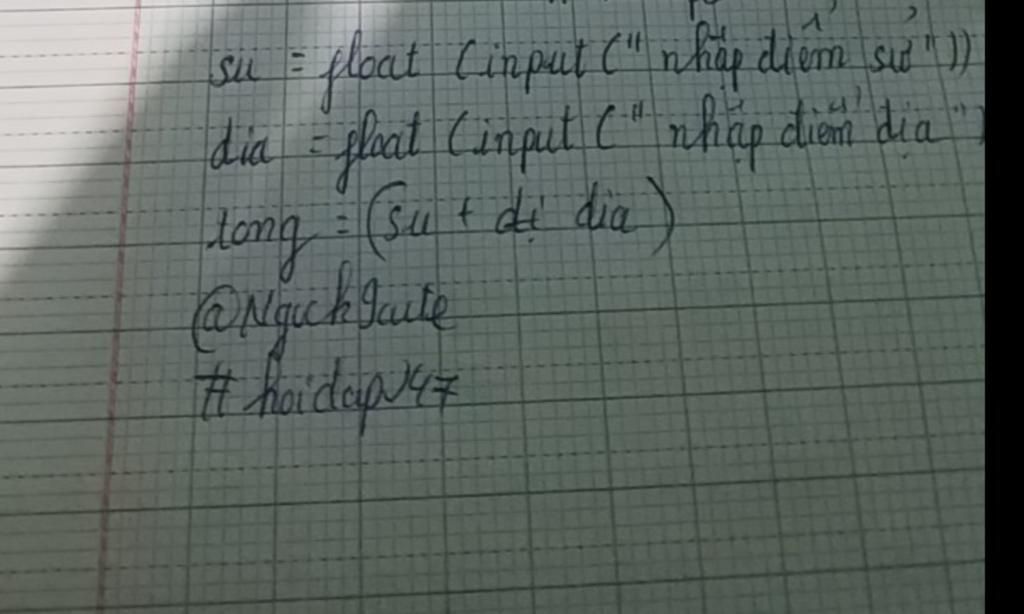 su = float (input (" nhập điểm sử "))
dia = float (input (" nhập điểm địa ")
tong = (su + dia)
@Nguchgaute
# hoidap247